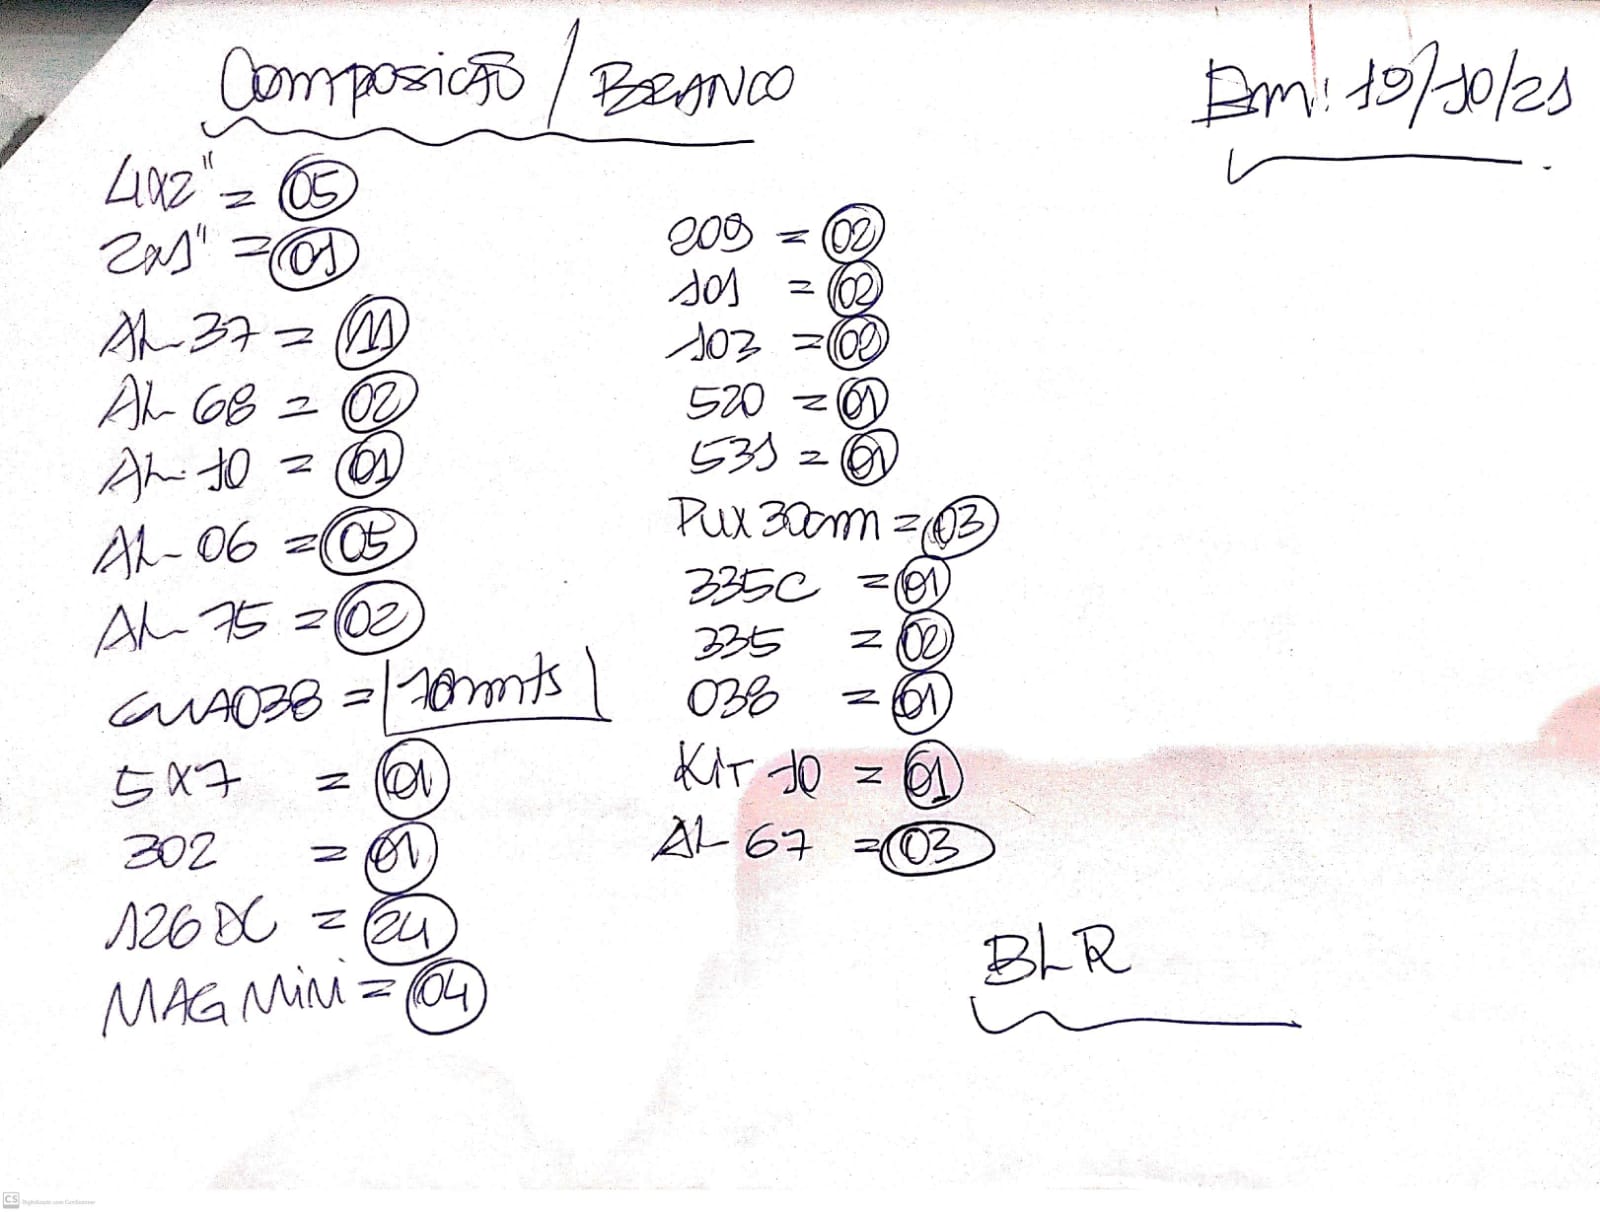 Composição / BRANCO
Em: 19/10/21
4x2" = 05
2x1" = 01
AL-37 = 11
AL-68 = 02
AL-10 = 01
AL-06 = 05
AL-75 = 02
GUA038 = 70mts
5x7 = 01
302 = 01
126DC = 24
MAG MiNi = 04
209 = 02
101 = 02
103 = 02
520 = 01
531 = 01
Pux 30cm = 03
335C = 01
335 = 02
038 = 01
KiT 10 = 01
AL-67 = 03
BLR
CS Digitalizado com CamScanner